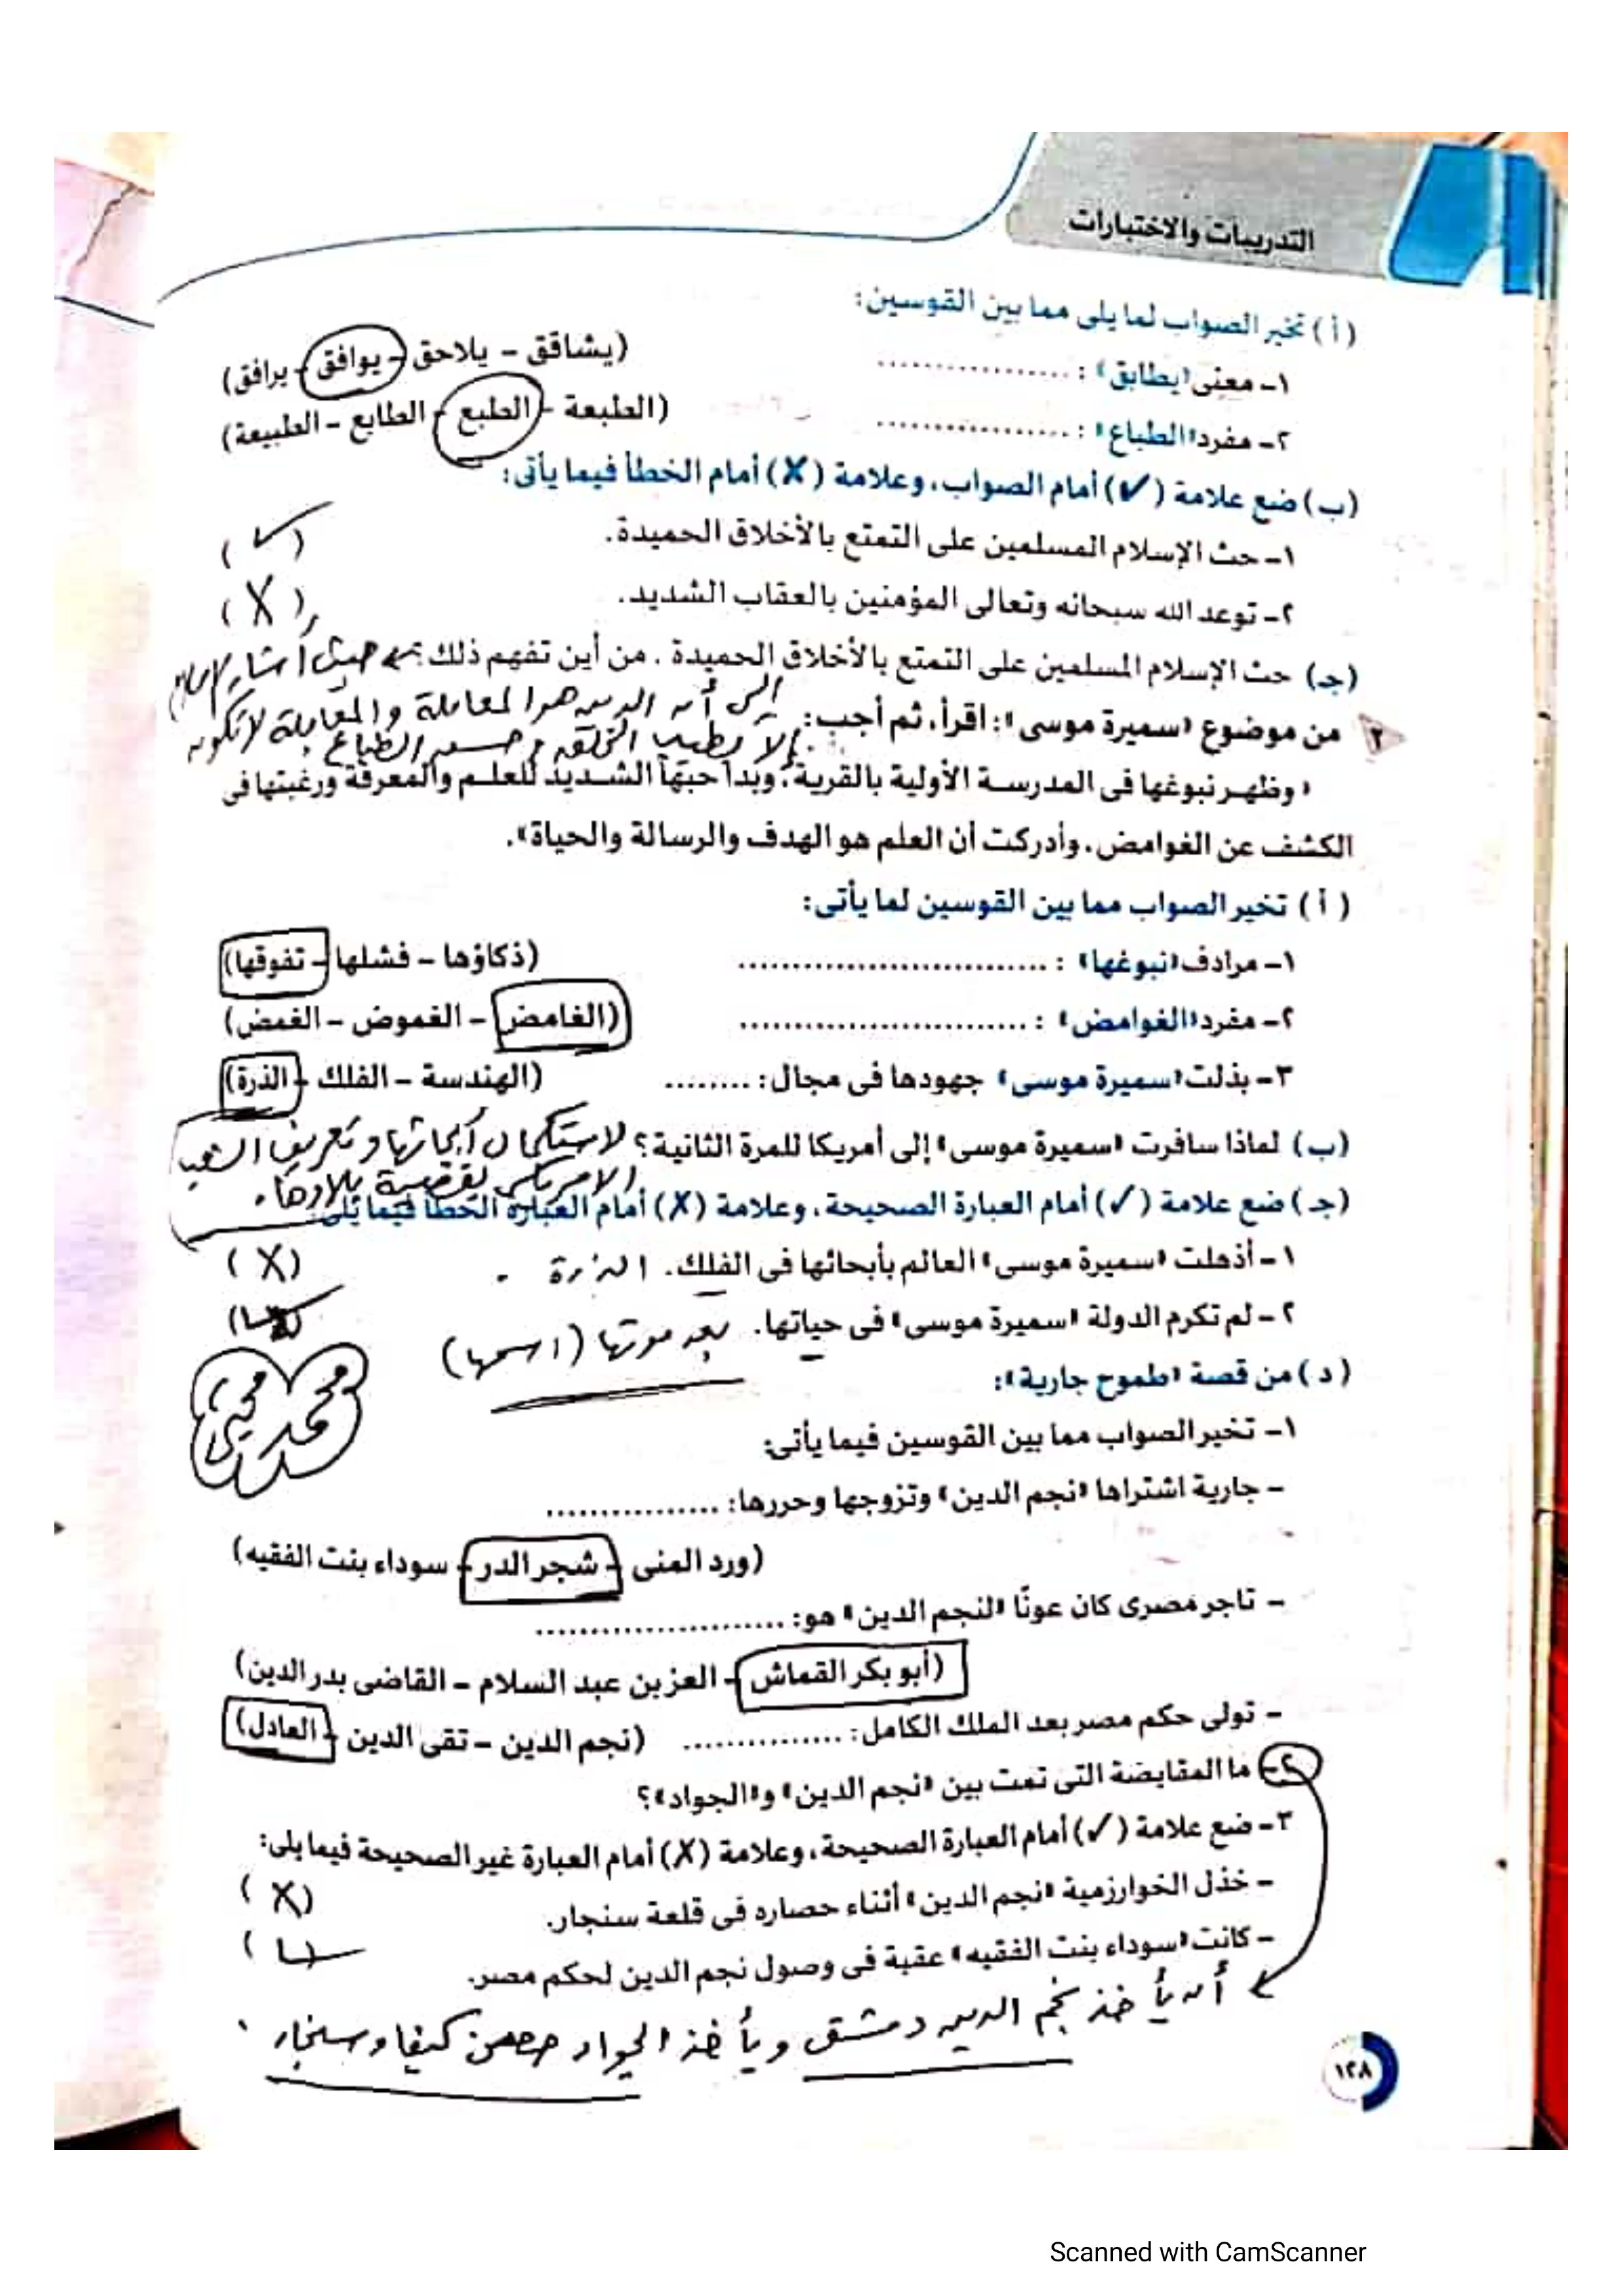 التدريبات والاختبارات
(أ) تخير الصواب لما يلى مما بين القوسين:
١- معنى «يطابق» : ................. (يشاقق - يلاحق - يوافق - يرافق)
٢- مفرد «الطباع» : ................. (الطبعة - الطبع - الطابع - الطبيعة)
(ب) ضع علامة (✓) أمام الصواب، وعلامة (X) أمام الخطأ فيما يأتى:
١- حث الإسلام المسلمين على التمتع بالأخلاق الحميدة. (✓)
٢- توعد الله سبحانه وتعالى المؤمنين بالعقاب الشديد. (X)
(جـ) حث الإسلام المسلمين على التمتع بالأخلاق الحميدة . من أين تفهم ذلك؟ حيث أشار الإسلام
إلى أن الدين هو المعاملة والمعاملة لا تكون
٢ من موضوع «سميرة موسى»: اقرأ، ثم أجب:
إلا بطيب الخلق وحسن الطباع
«وظهر نبوغها فى المدرسة الأولية بالقرية، وبدا حبها الشديد للعلم والمعرفة ورغبتها فى
الكشف عن الغوامض، وأدركت أن العلم هو الهدف والرسالة والحياة».
(أ) تخير الصواب مما بين القوسين لما يأتى:
١- مرادف «نبوغها» : ............................ (ذكاؤها - فشلها - تفوقها)
٢- مفرد «الغوامض» : .......................... (الغامض - الغموض - الغمض)
٣- بذلت «سميرة موسى» جهودها فى مجال: ........ (الهندسة - الفلك - الذرة)
(ب) لماذا سافرت «سميرة موسى» إلى أمريكا للمرة الثانية؟ لاستكمال أبحاثها وتعريف الشعب
الأمريكى بقضية بلادها.
(جـ) ضع علامة (✓) أمام العبارة الصحيحة، وعلامة (X) أمام العبارة الخطأ فيما يلى:
١- أذهلت «سميرة موسى» العالم بأبحاثها فى الفلك. الذرة . (X)
٢- لم تكرم الدولة «سميرة موسى» فى حياتها. بعد موتها (اسمها) (✓)
محمد محيى
(د) من قصة «طموح جارية»:
١- تخير الصواب مما بين القوسين فيما يأتى:
- جارية اشتراها «نجم الدين» وتزوجها وحررها: ................
(ورد المنى - شجر الدر - سوداء بنت الفقيه)
- تاجر مصرى كان عونًا «لنجم الدين» هو: .......................
(أبو بكر القماش - العز بن عبد السلام - القاضى بدر الدين)
- تولى حكم مصر بعد الملك الكامل: ............... (نجم الدين - تقى الدين - العادل)
٢- ما المقايضة التى تمت بين «نجم الدين» و«الجواد»؟
٣- ضع علامة (✓) أمام العبارة الصحيحة، وعلامة (X) أمام العبارة غير الصحيحة فيما يلى:
- خذل الخوارزمية «نجم الدين» أثناء حصاره فى قلعة سنجار. (X)
- كانت «سوداء بنت الفقيه» عقبة فى وصول نجم الدين لحكم مصر. (✓)
أن يأخذ نجم الدين دمشق ويأخذ الجواد حصن كيفا وسنجار .
١٢٨
Scanned with CamScanner